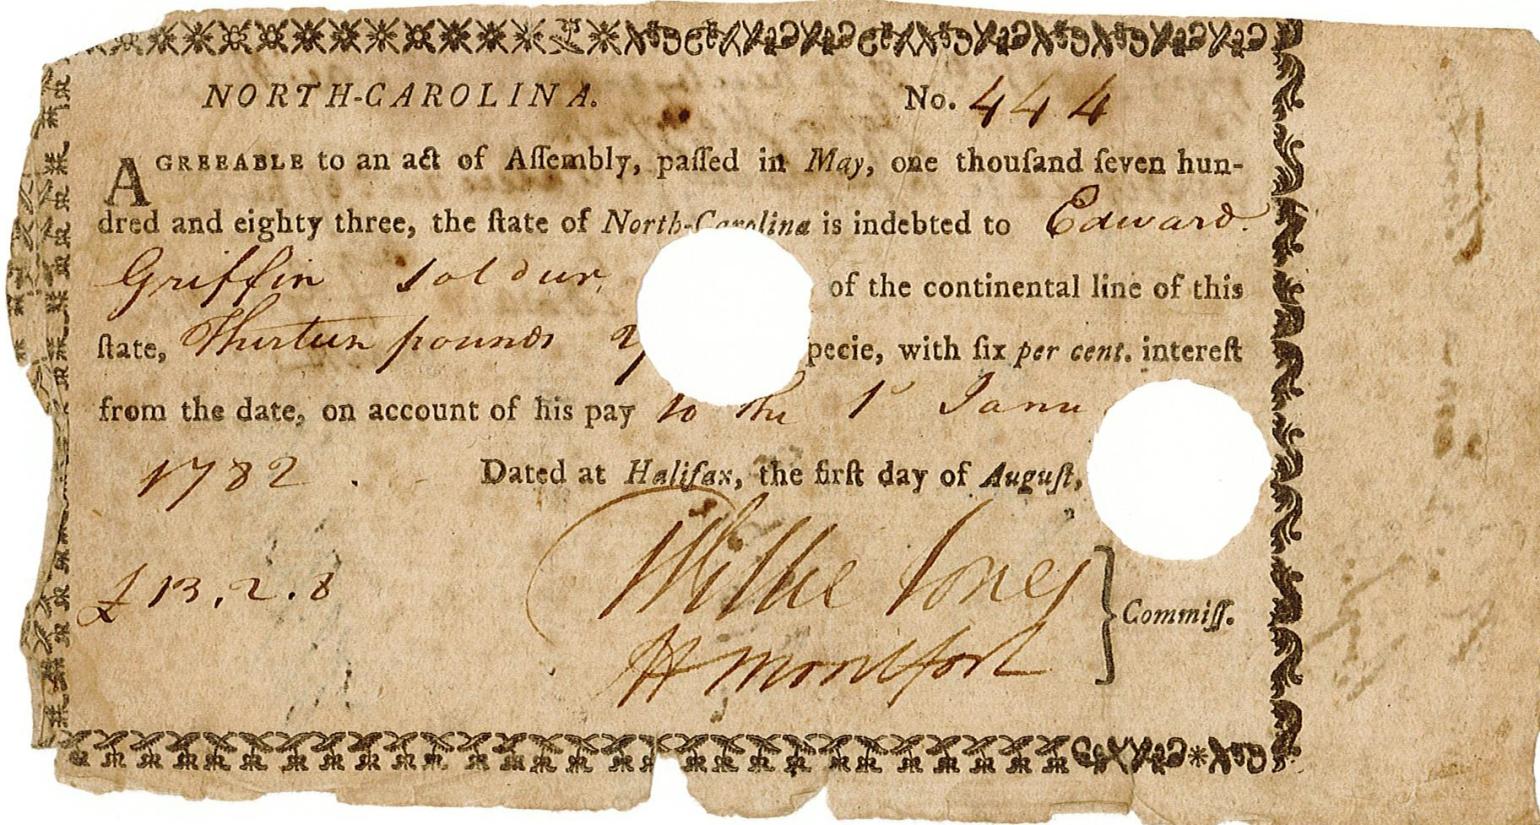 NORTH-CAROLINA. No. 444
AGREEABLE to an act of Aſſembly, paſſed in May, one thouſand ſeven hun-
dred and eighty three, the ſtate of North-Carolina is indebted to Edward
Griffin soldier, of the continental line of this
ſtate, Thirteen pounds pecie, with ſix per cent. intereſt
from the date, on account of his pay to the 1st Janu
1782. Dated at Halifax, the firſt day of Auguſt,
Willie Jones
£13.2.8 Commiſſ.
H Montfort